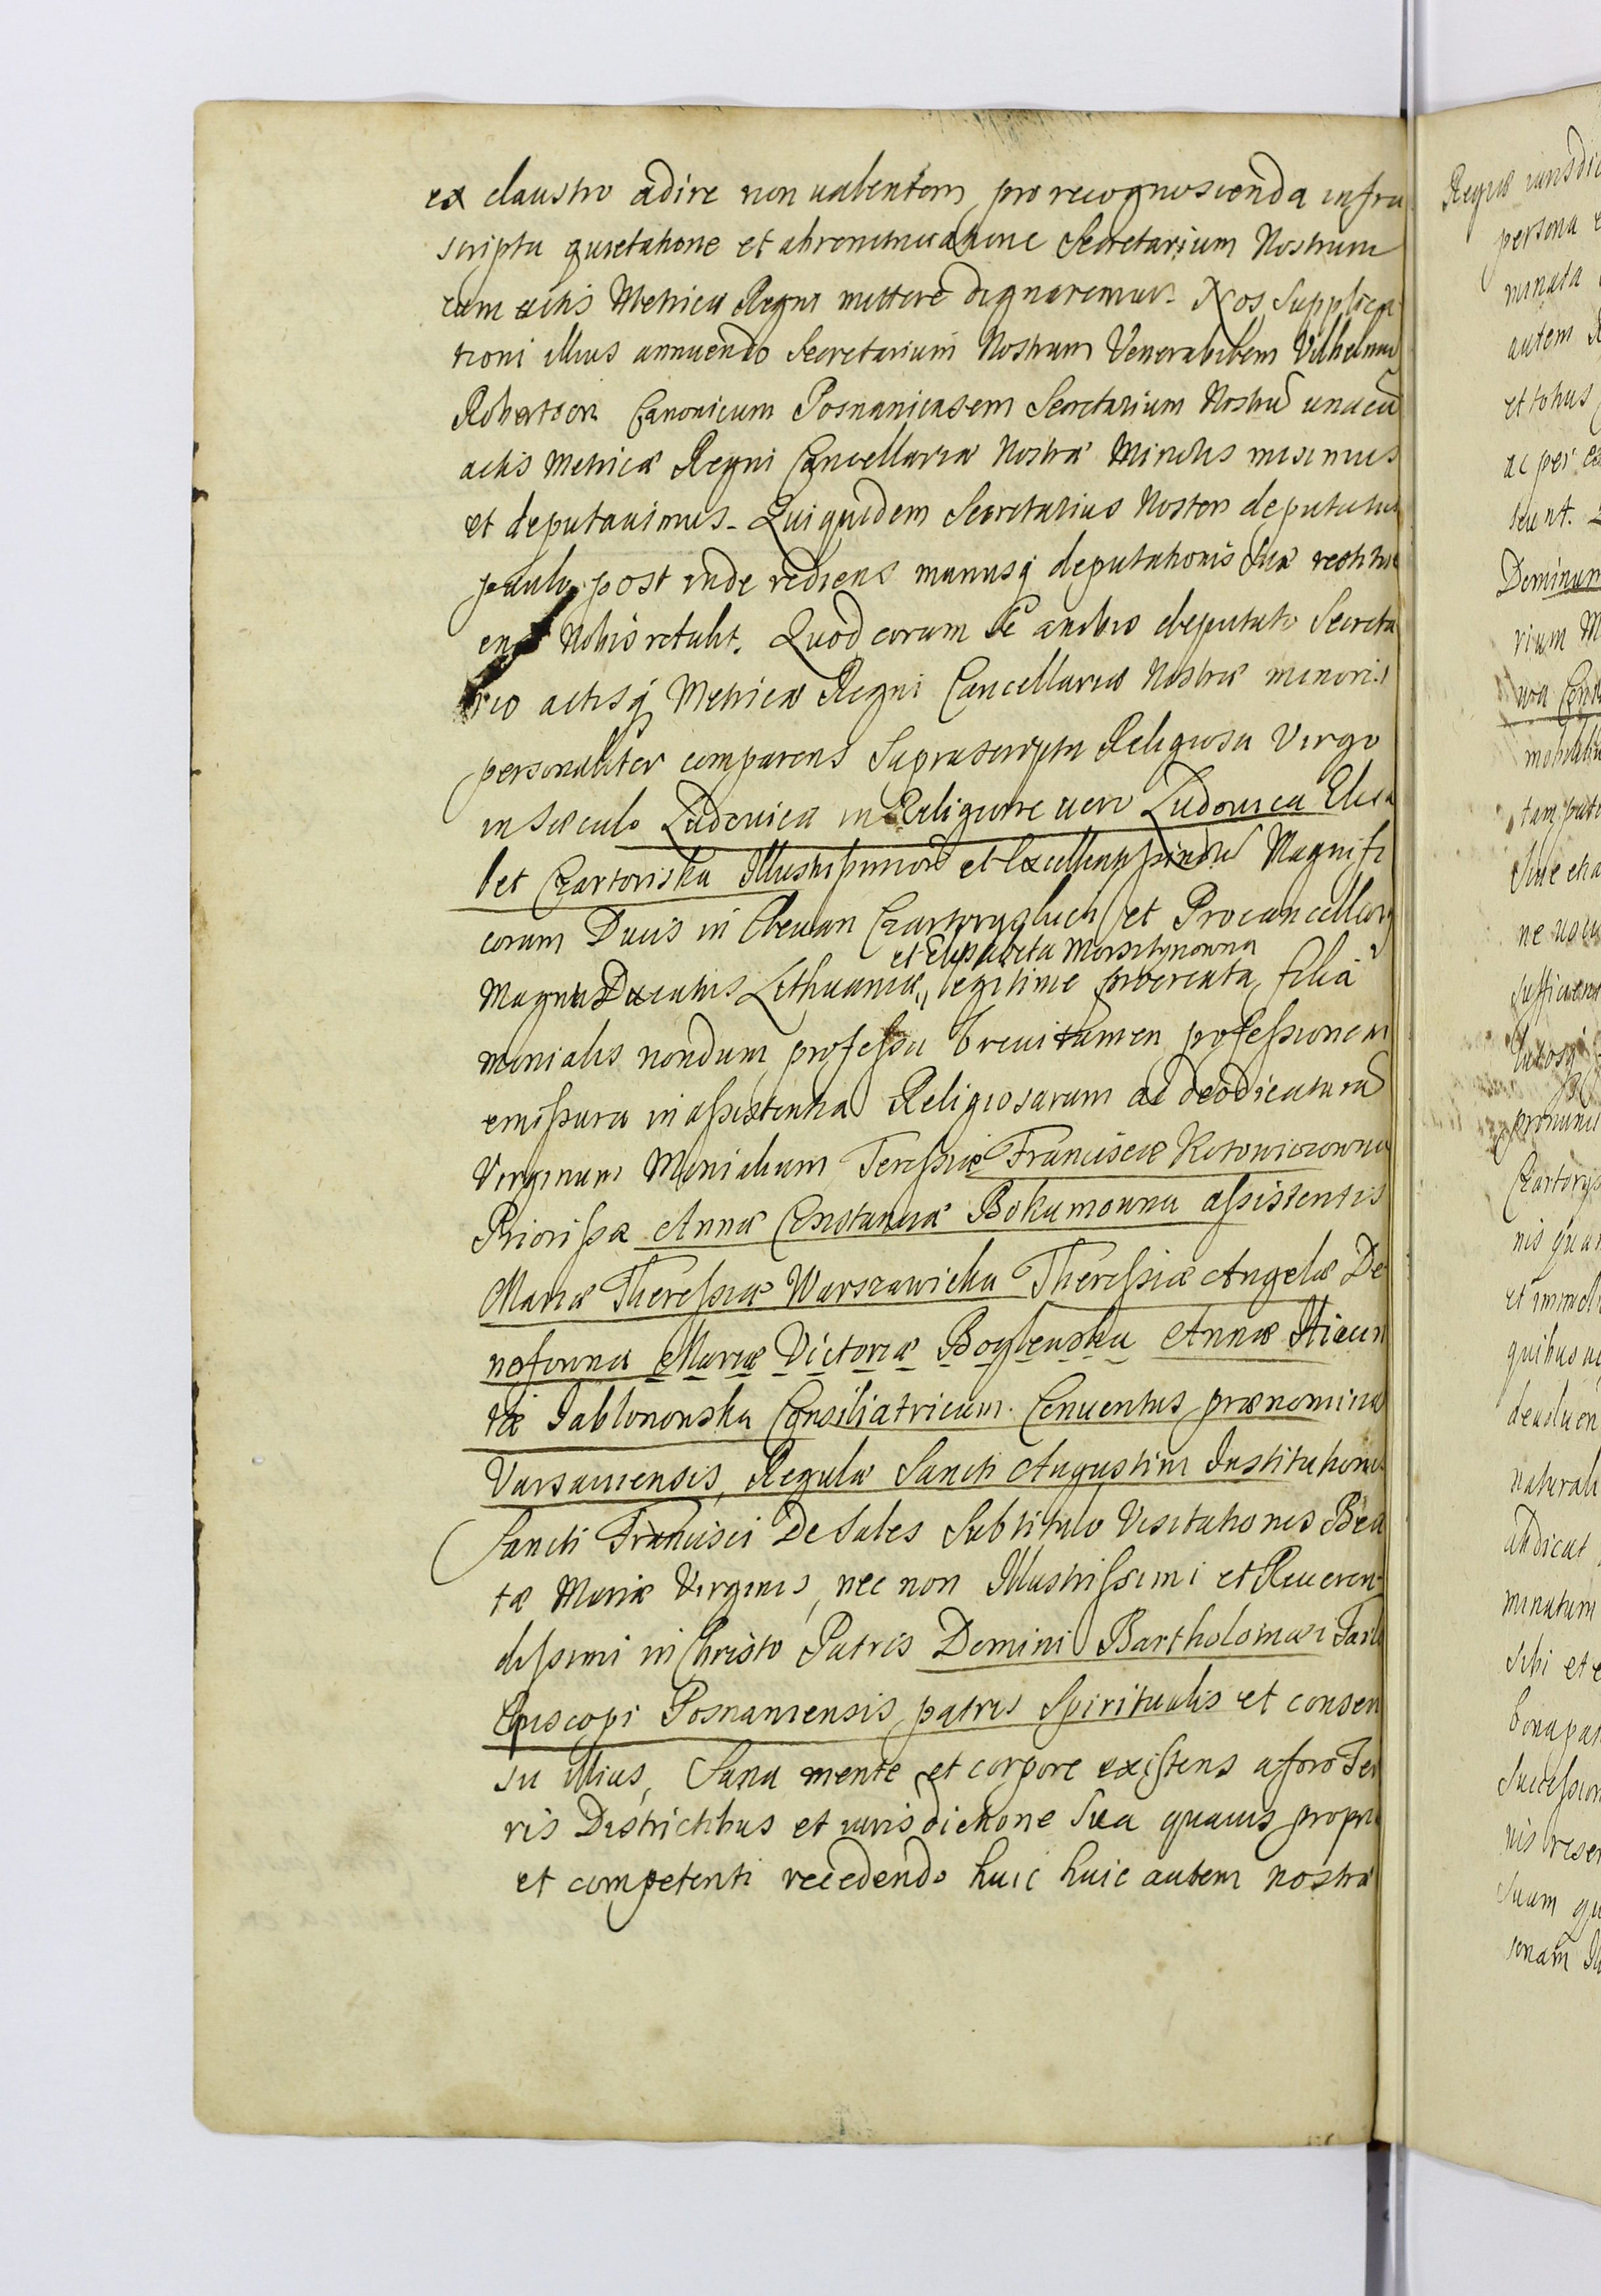 ex claustro adire non ualentem pro recognoscenda infra
scripta quietatione et abrenunciatione Secretarium Nostrum
cum actis Metrica Regni mittere dignaremur. Nos Supplica
tioni illius annuendo Secretarium Nostrum Venerabilem Vilhelmum
Robertson Canonicum Posnaniensem Secretarium Nostrũ unacũ
actis Metricæ Regni Cancellariæ Nostræ Minoris misimus
et deputauimus. Quiquidem Secretarius Noster deputatus
paulo post inde rediens munusq deputationis suæ restitu
ens Nobis retulit. Quod coram Se deputato Secreta
rio actisq Metricæ Regni Cancellariæ Nostræ minoris
personaliter comparens Suprascripta Religiosa Virgo
in Sæculo Ludouica in Religione uero Ludouica Elisa
bet Czartoriska Illustrissimorũ et Excellentissimorũ Magnifi
corum Ducis in Clewan Czartorysluch et Procancellarij
et Elisabeta Morsztynowna
Magni Ducatus Lithuaniæ,, legitime procreata filia
monialis nondum professa breui tamen professionem
emissura in assistentia Religiosarum ac deodicatarũ
Virginum Monialium Teressiæ Franciscæ Kotowiczowna
Priorissæ Annæ Constantiæ Bokumowna assistentis
Mariæ Theressiæ Warszawicka Theressiæ Angelæ De
nofowna Mariæ Victoriæ Boglewska Annæ Hiacin
tæ Jablonowska Consiliatricum. Conuentus prænomina
Varsauiensis, Regulæ Sancti Augustini Institutionis
Sancti Francisci De Sales Sub titulo Visitationis Bea
tæ Mariæ Virginis, nec non Illustrissimi et Reueren
dissimi in Christo Patris Domini Bartholomæi Tarlo
Episcopi Posnaniensis patris Spiritualis et consen
su illius, Sana mente et corpore existens a foro Ter
ris Districtibus et iurisdictione Sua quauis propria
et competenti recedendo huic huic autem nostræ
Regiæ iurisdic
persona
minata
autem
et totius
ac per
seunt.
Dominum
rium M
mobilib
tam
Siue etia
ne
sufficien
pronunci
Czartorys
nis quam
et immobi
quibus
deuoluen
naturali
abdicat
minatum
Sibi et
bona
Succession
nis reser
Suum qu